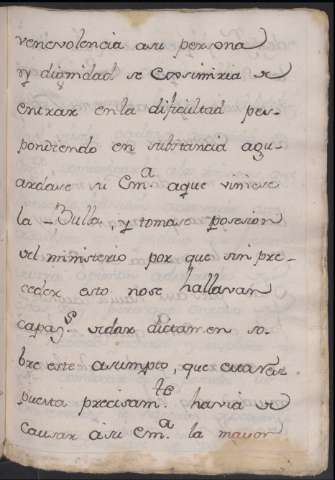 venevolencia asu persona
y dignidad se exsimiria de
entrar en la dificultad res-
pondiendo en substancia agu-
ardase su Em.ª aque viniese
la Bulla, y tomase posesion
del ministerio por que sin pre-
ceder esto nose hallavan
capaz.es adar dictamen so-
bre este asumpto, que esta res-
puesta precisam.te havia de
causar asu Em.ª la mayor